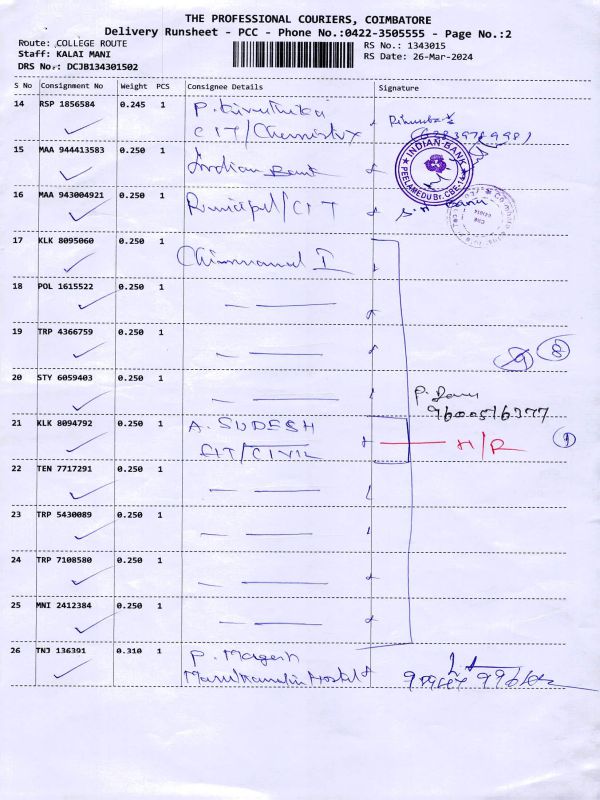 THE PROFESSIONAL COURIERS, COIMBATORE
Delivery Runsheet - PCC - Phone No.:0422-3505555 - Page No.:2
Route: COLLEGE ROUTE
Staff: KALAI MANI
DRS No.: DCJB134301502
RS No.: 1343015
RS Date: 26-Mar-2024
S No Consignment No Weight PCS Consignee Details Signature
14 RSP 1856584 0.245 1 P.
CIT/Chemistry
15 MAA 944413583 0.250 1 Indian Bank
INDIAN-BANK
PEELAMEDU Br. CBE-14
16 MAA 943004921 0.250 1 Principal/CIT
17 KLK 8095060 0.250 1
18 POL 1615522 0.250 1
19 TRP 4366759 0.250 1
8
20 STY 6059403 0.250 1
9600516377
21 KLK 8094792 0.250 1 A. SUDESH
CIT/CIVIL
H/R
1
22 TEN 7717291 0.250 1
23 TRP 5430089 0.250 1
24 TRP 7108580 0.250 1
25 MNI 2412384 0.250 1
26 TNJ 136391 0.310 1 P. Magesh
Hostel